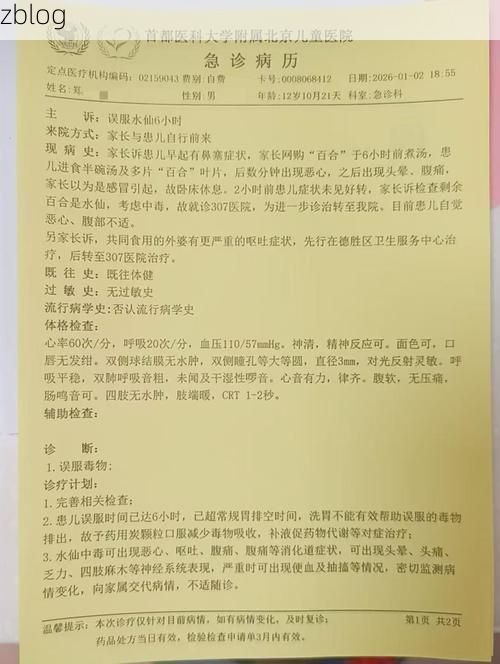 zblog
首都医科大学附属北京儿童医院
急诊病历
定点医疗机构编码: 02159043 费别:自费 卡号:0008068412 日期:2026-01-02 18:55
姓名:郑 性别:男 年龄:12岁10月21天 科室:急诊科
主 诉:误服水仙6小时
来院方式:家长与患儿自行前来
现 病 史:家长诉患儿早起有鼻塞症状,家长网购“百合”于6小时前煮汤,患
儿进食半碗汤及多片“百合”叶片,后数分钟出现恶心,之后出现头晕、腹痛,
家长以为是感冒引起,故卧床休息。2小时前患儿症状未见好转,家长诉检查剩余
百合是水仙,考虑中毒,故就诊307医院,为进一步诊治转至我院。目前患儿自觉
恶心、腹部不适。
另家长诉,共同食用的外婆有更严重的呕吐症状,先行在德胜区卫生服务中心治
疗,后转至307医院治疗。
既 往 史:既往体健
过 敏 史:无过敏史
流行病学史:否认流行病学史
体格检查:
心率60次/分,呼吸20次/分,血压110/57mmHg。神清,精神反应可。面色可。口
唇无发绀。双侧球结膜无水肿,双侧瞳孔等大等圆,直径3mm,对光反射灵敏。呼
吸平稳,双肺呼吸音粗,未闻及干湿性啰音。心音有力,律齐。腹软,无压痛,
肠鸣音可。四肢无水肿,肢端暖,CRT 1-2秒。
辅助检查:
诊 断:
1.误服毒物;
诊疗计划:
1.完善相关检查;
2.患儿误服时间已达6小时,已超常规胃排空时间,洗胃不能有效帮助误服的毒物
排出,故予药用炭颗粒口服减少毒物吸收,补液促药物代谢等对症治疗;
3.水仙中毒可出现恶心、呕吐、腹痛、腹痛等消化道症状,可出现头晕、头痛、
乏力、四肢麻木等神经系统表现,严重时可出现便血及抽搐等情况,密切监测病
情变化,向家属交代病情,不适随诊。
温馨提示:本次诊疗仅针对目前病情,如有病情变化,及时复诊;
药品处方当日有效,检验检查申请单3月内有效。
第1页 共2页